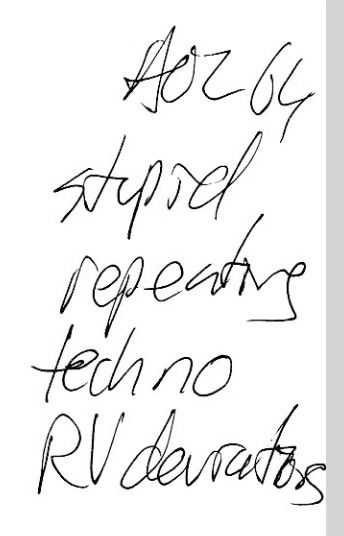 AOL 64
stupid
repeating
techno
RV deviations